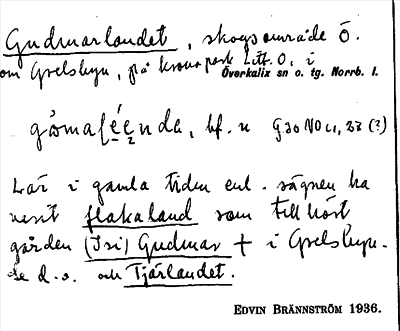 Gudmarlandet, skogsområde Ö.
om Grelsbyn, på kronopark Litt. O, i
Överkalix sn o. tg. Norrb. l.
bf. n G 30 NO
Lär i gamla tiden enl. sägnen ha
varit flakaland som tillhört
gården (Isi) Gudmar + i Grelsbyn.
Se d. o. och Tjärlandet.
EDVIN BRÄNNSTRÖM 1936.